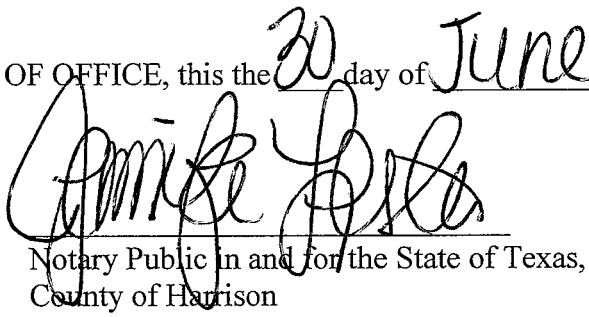 OF OFFICE, this the 30 day of June
Notary Public in and for the State of Texas,
County of Harrison